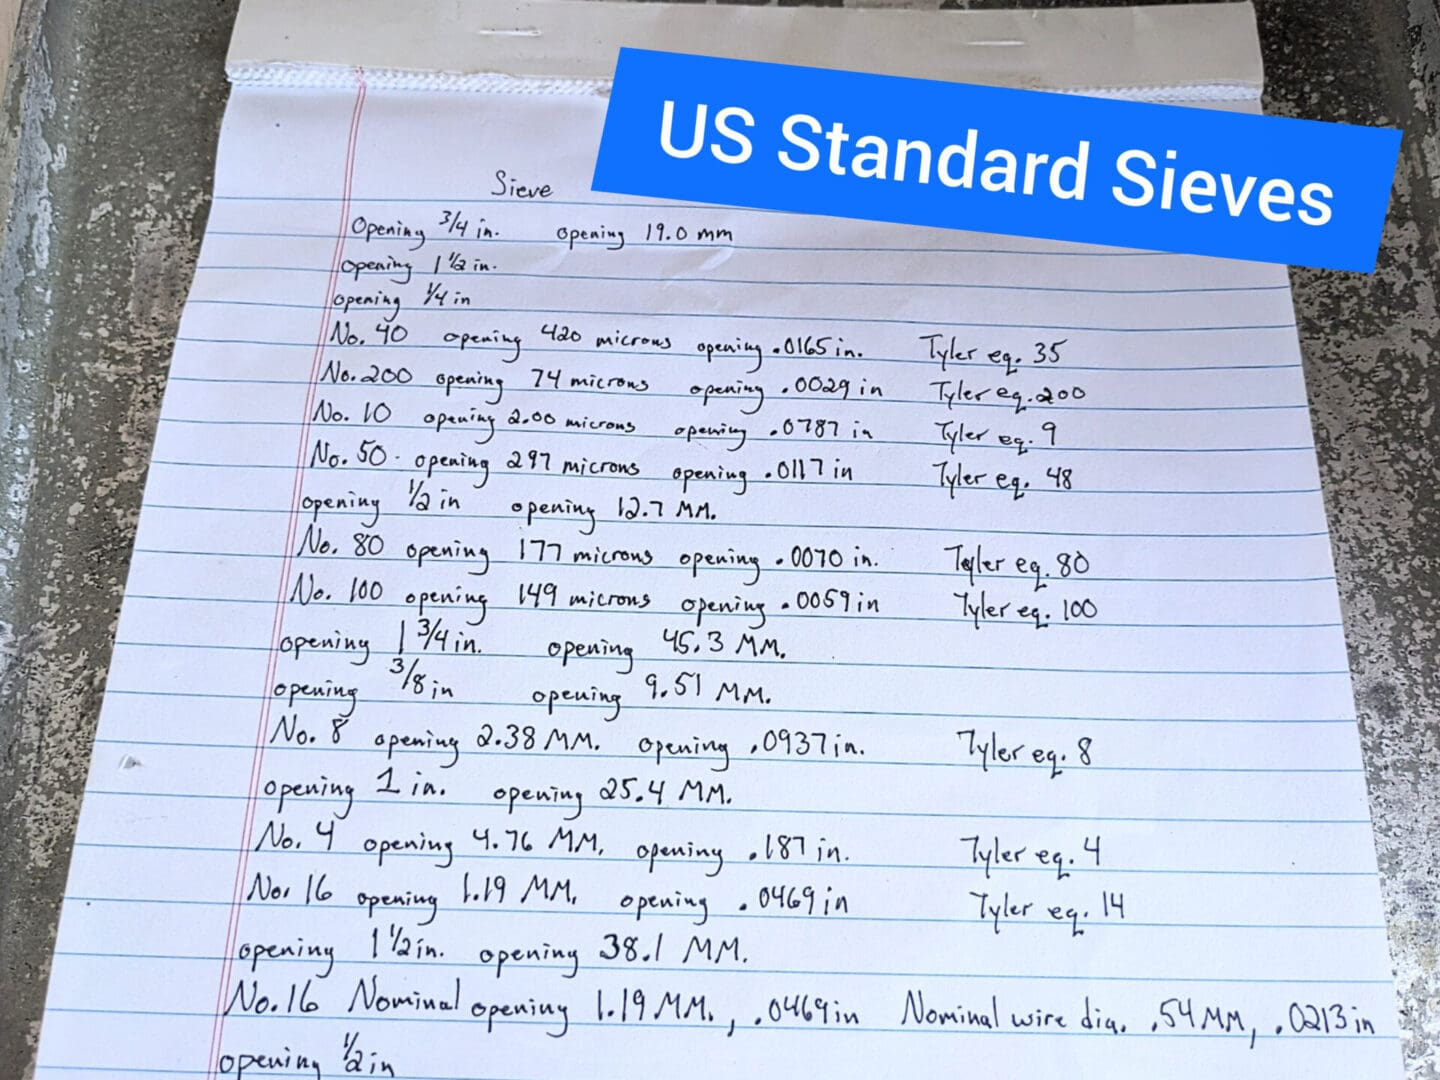 US Standard Sieves
Sieve
Opening 3/4 in. opening 19.0 mm
opening 1 1/2 in.
opening 1/4 in
No. 40 opening 420 microns opening .0165 in. Tyler eq. 35
No. 200 opening 74 microns opening .0029 in Tyler eq. 200
No. 10 opening 2.00 microns opening .0787 in Tyler eq. 9
No. 50. opening 297 microns opening .0117 in Tyler eq. 48
opening 1/2 in opening 12.7 MM.
No. 80 opening 177 microns opening .0070 in. Tyler eq. 80
No. 100 opening 149 microns opening .0059 in Tyler eq. 100
opening 1 3/4 in. opening 45.3 MM.
opening 3/8 in opening 9.51 MM.
No. 8 opening 2.38 MM. opening .0937 in. Tyler eq. 8
opening 1 in. opening 25.4 MM.
No. 4 opening 4.76 MM. opening .187 in. Tyler eq. 4
No. 16 opening 1.19 MM. opening .0469 in Tyler eq. 14
opening 1 1/2 in. opening 38.1 MM.
No. 16 Nominal opening 1.19 MM., .0469 in Nominal wire dia. .54 MM, .0213 in
opening 1/2 in